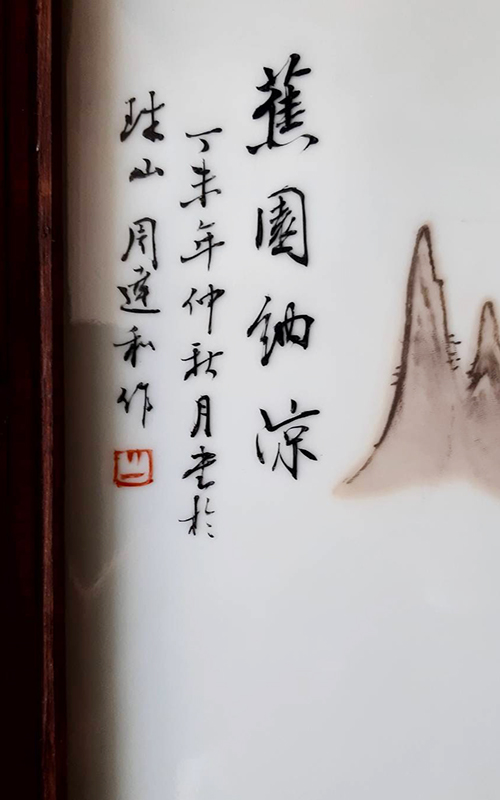 蕉園納涼
丁未年仲秋月書於
珠山周達和作